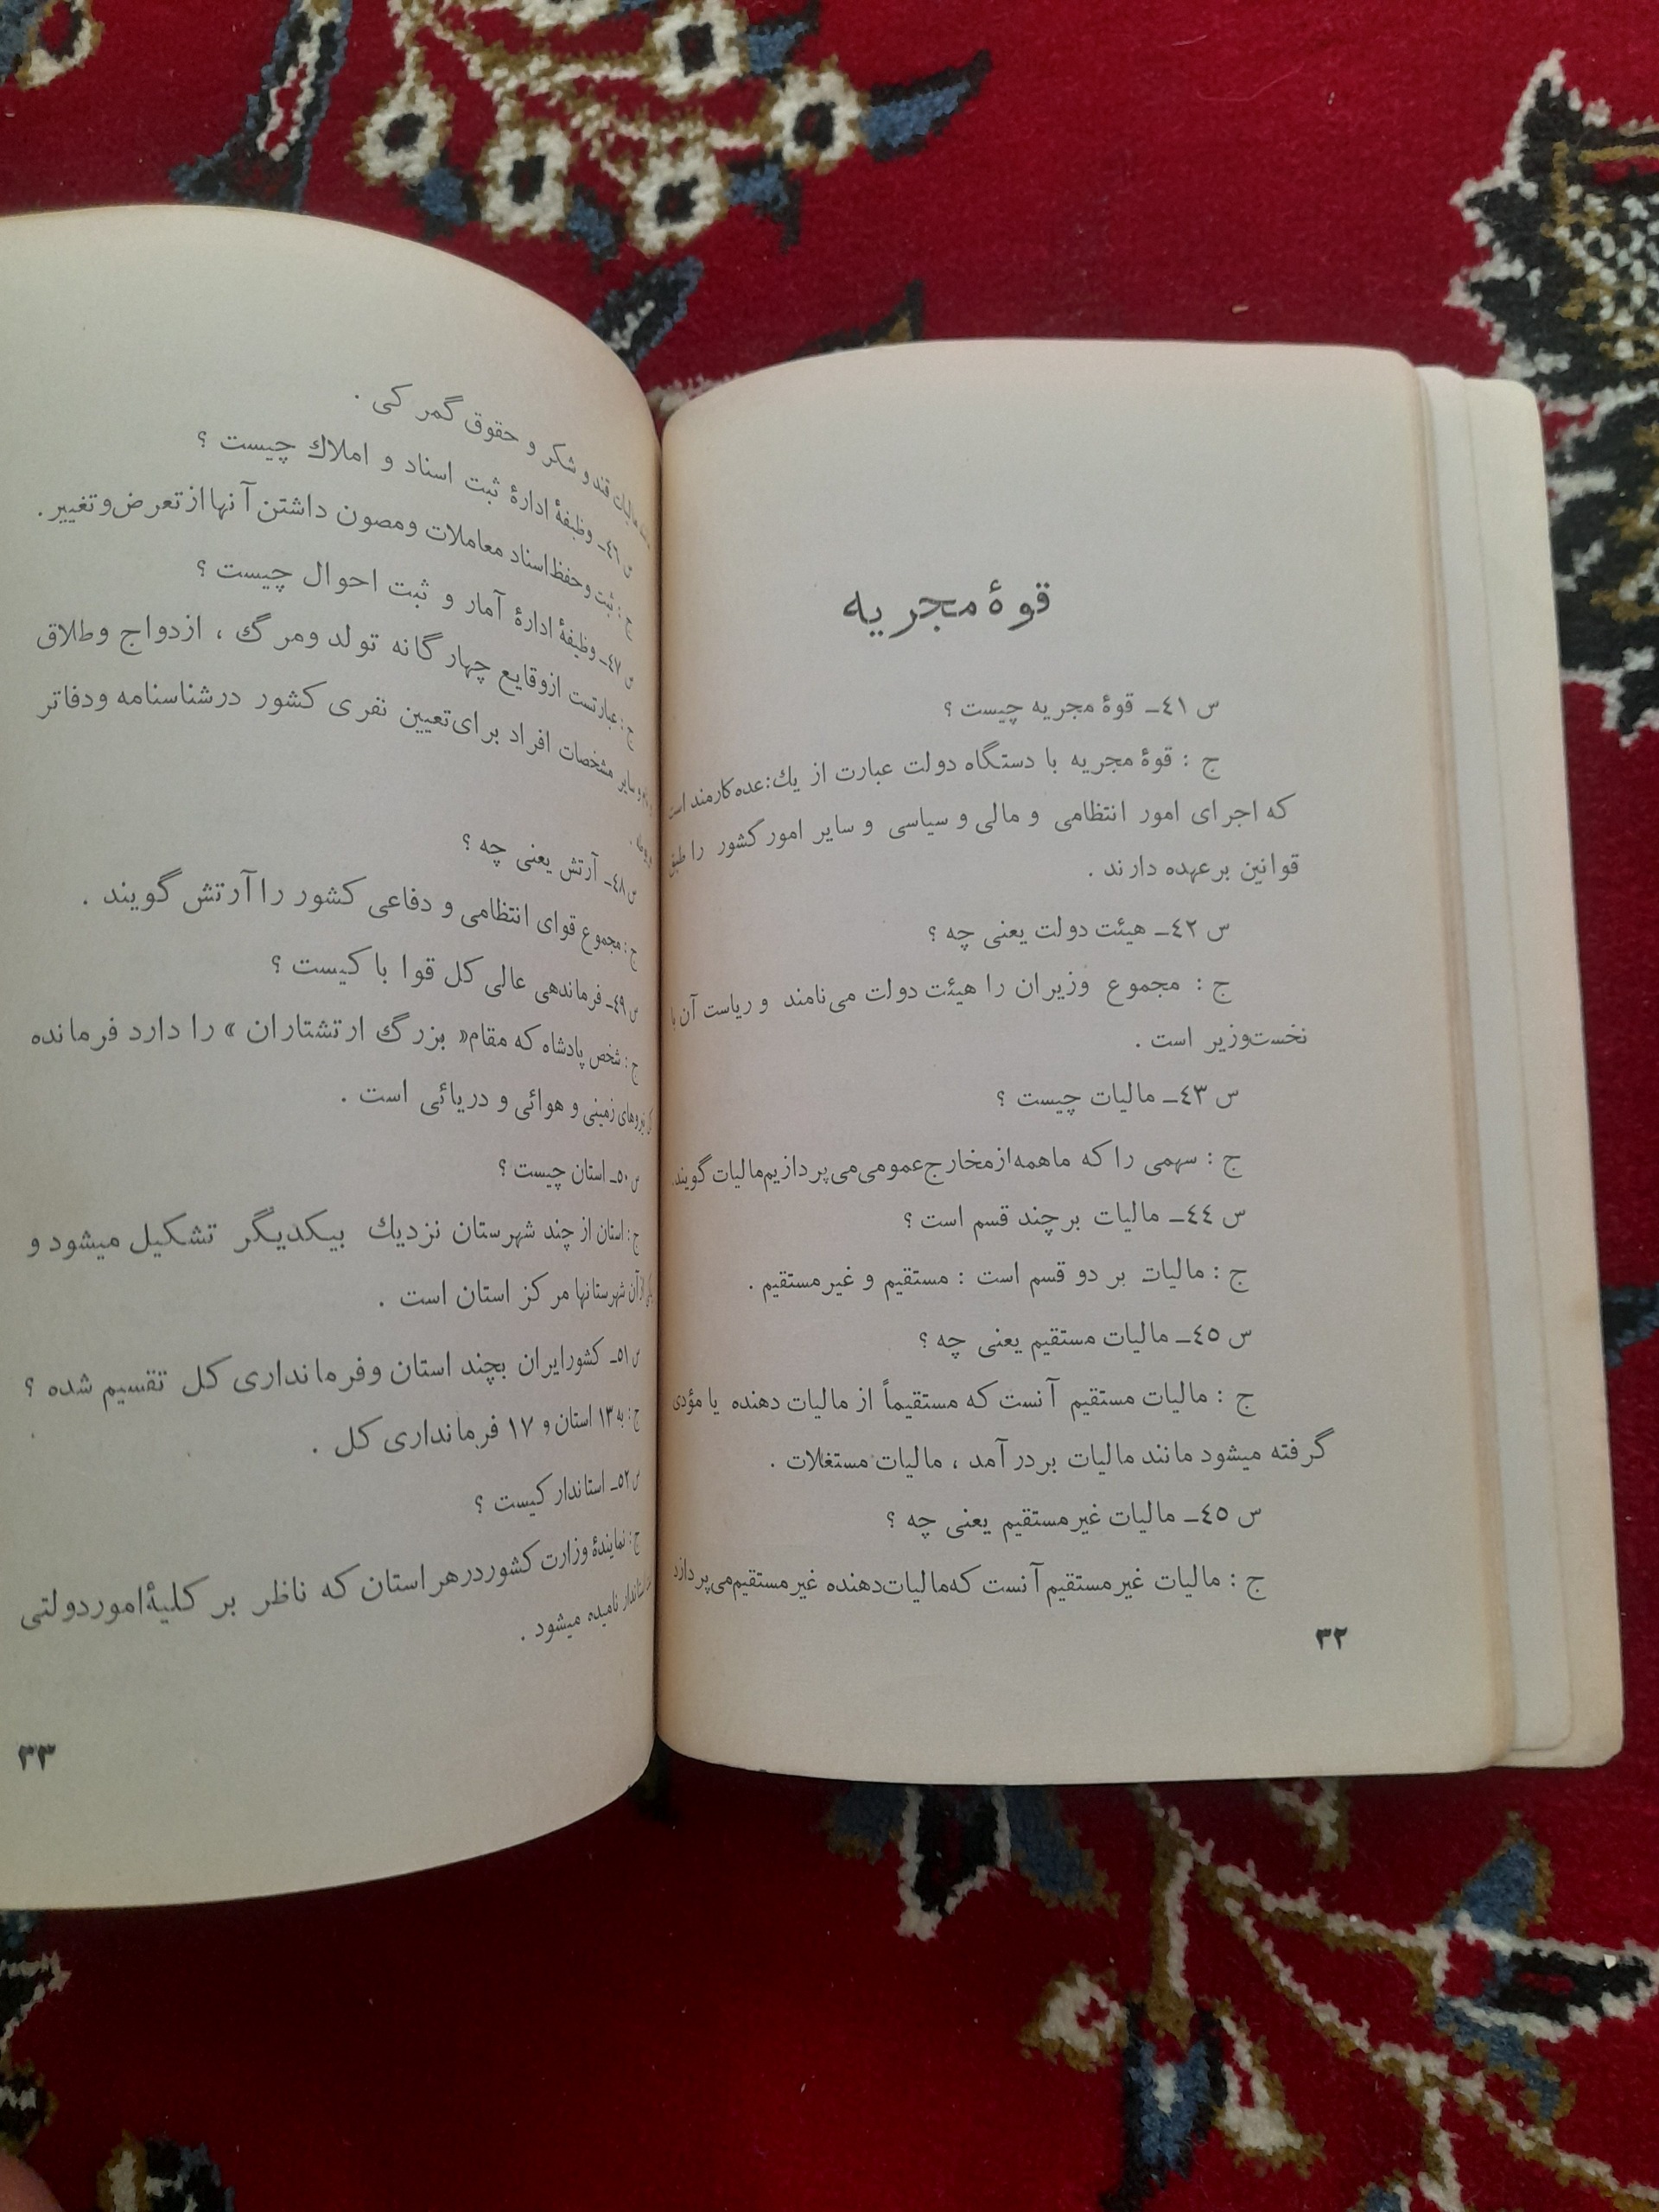 قوهٔ مجریه
س ٤١ـ قوهٔ مجریه چیست ؟
ج : قوهٔ مجریه با دستگاه دولت عبارت از یك:عده کارمند است
که اجرای امور انتظامی و مالی و سیاسی و سایر امور کشور را طبق
قوانین برعهده دارند .
س ٤٢ـ هیئت دولت یعنی چه ؟
ج : مجموع وزیران را هیئت دولت می‌نامند و ریاست آن با
نخست‌وزیر است .
س ٤٣ـ مالیات چیست ؟
ج : سهمی را که ما همه از مخارج عمومی می‌پردازیم مالیات گویند.
س ٤٤ـ مالیات برچند قسم است ؟
ج : مالیات بر دو قسم است : مستقیم و غیرمستقیم .
س ٤٥ـ مالیات مستقیم یعنی چه ؟
ج : مالیات مستقیم آنست که مستقیماً از مالیات دهنده یا مؤدی
گرفته میشود مانند مالیات بردرآمد ، مالیات مستغلات .
س ٤٥ـ مالیات غیرمستقیم یعنی چه ؟
ج : مالیات غیرمستقیم آنست که مالیات‌دهنده غیرمستقیم می‌پردازد
٣٢
مالیات قند و شکر و حقوق گمرکی .
س ٤٦ـ وظیفهٔ ادارهٔ ثبت اسناد و املاك چیست ؟
ج : ثبت و حفظ اسناد معاملات ومصون داشتن آنها از تعرض و تغییر .
س ٤٧ـ وظیفهٔ ادارهٔ آمار و ثبت احوال چیست ؟
ج : عبارتست از وقایع چهارگانه تولد ومرگ ، ازدواج وطلاق
و سایر مشخصات افراد برای تعیین نفری کشور درشناسنامه ودفاتر
س ٤٨ـ آرتش یعنی چه ؟
ج : مجموع قوای انتظامی و دفاعی کشور را آرتش گویند .
س ٤٩ـ فرماندهی عالی کل قوا با کیست ؟
ج : شخص پادشاه که مقام « بزرگ ارتشتاران » را دارد فرمانده
کل نیروهای زمینی و هوائی و دریائی است .
س ٥٠ـ استان چیست ؟
ج : استان از چند شهرستان نزدیك بیکدیگر تشکیل میشود و
یکی از آن شهرستانها مرکز استان است .
س ٥١ـ کشور ایران بچند استان و فرمانداری کل تقسیم شده ؟
ج : به ١٣ استان و ١٧ فرمانداری کل .
س ٥٢ـ استاندار کیست ؟
ج : نمایندهٔ وزارت کشور در هر استان که ناظر بر کلیهٔ امور دولتی
استاندار نامیده میشود .
٣٣